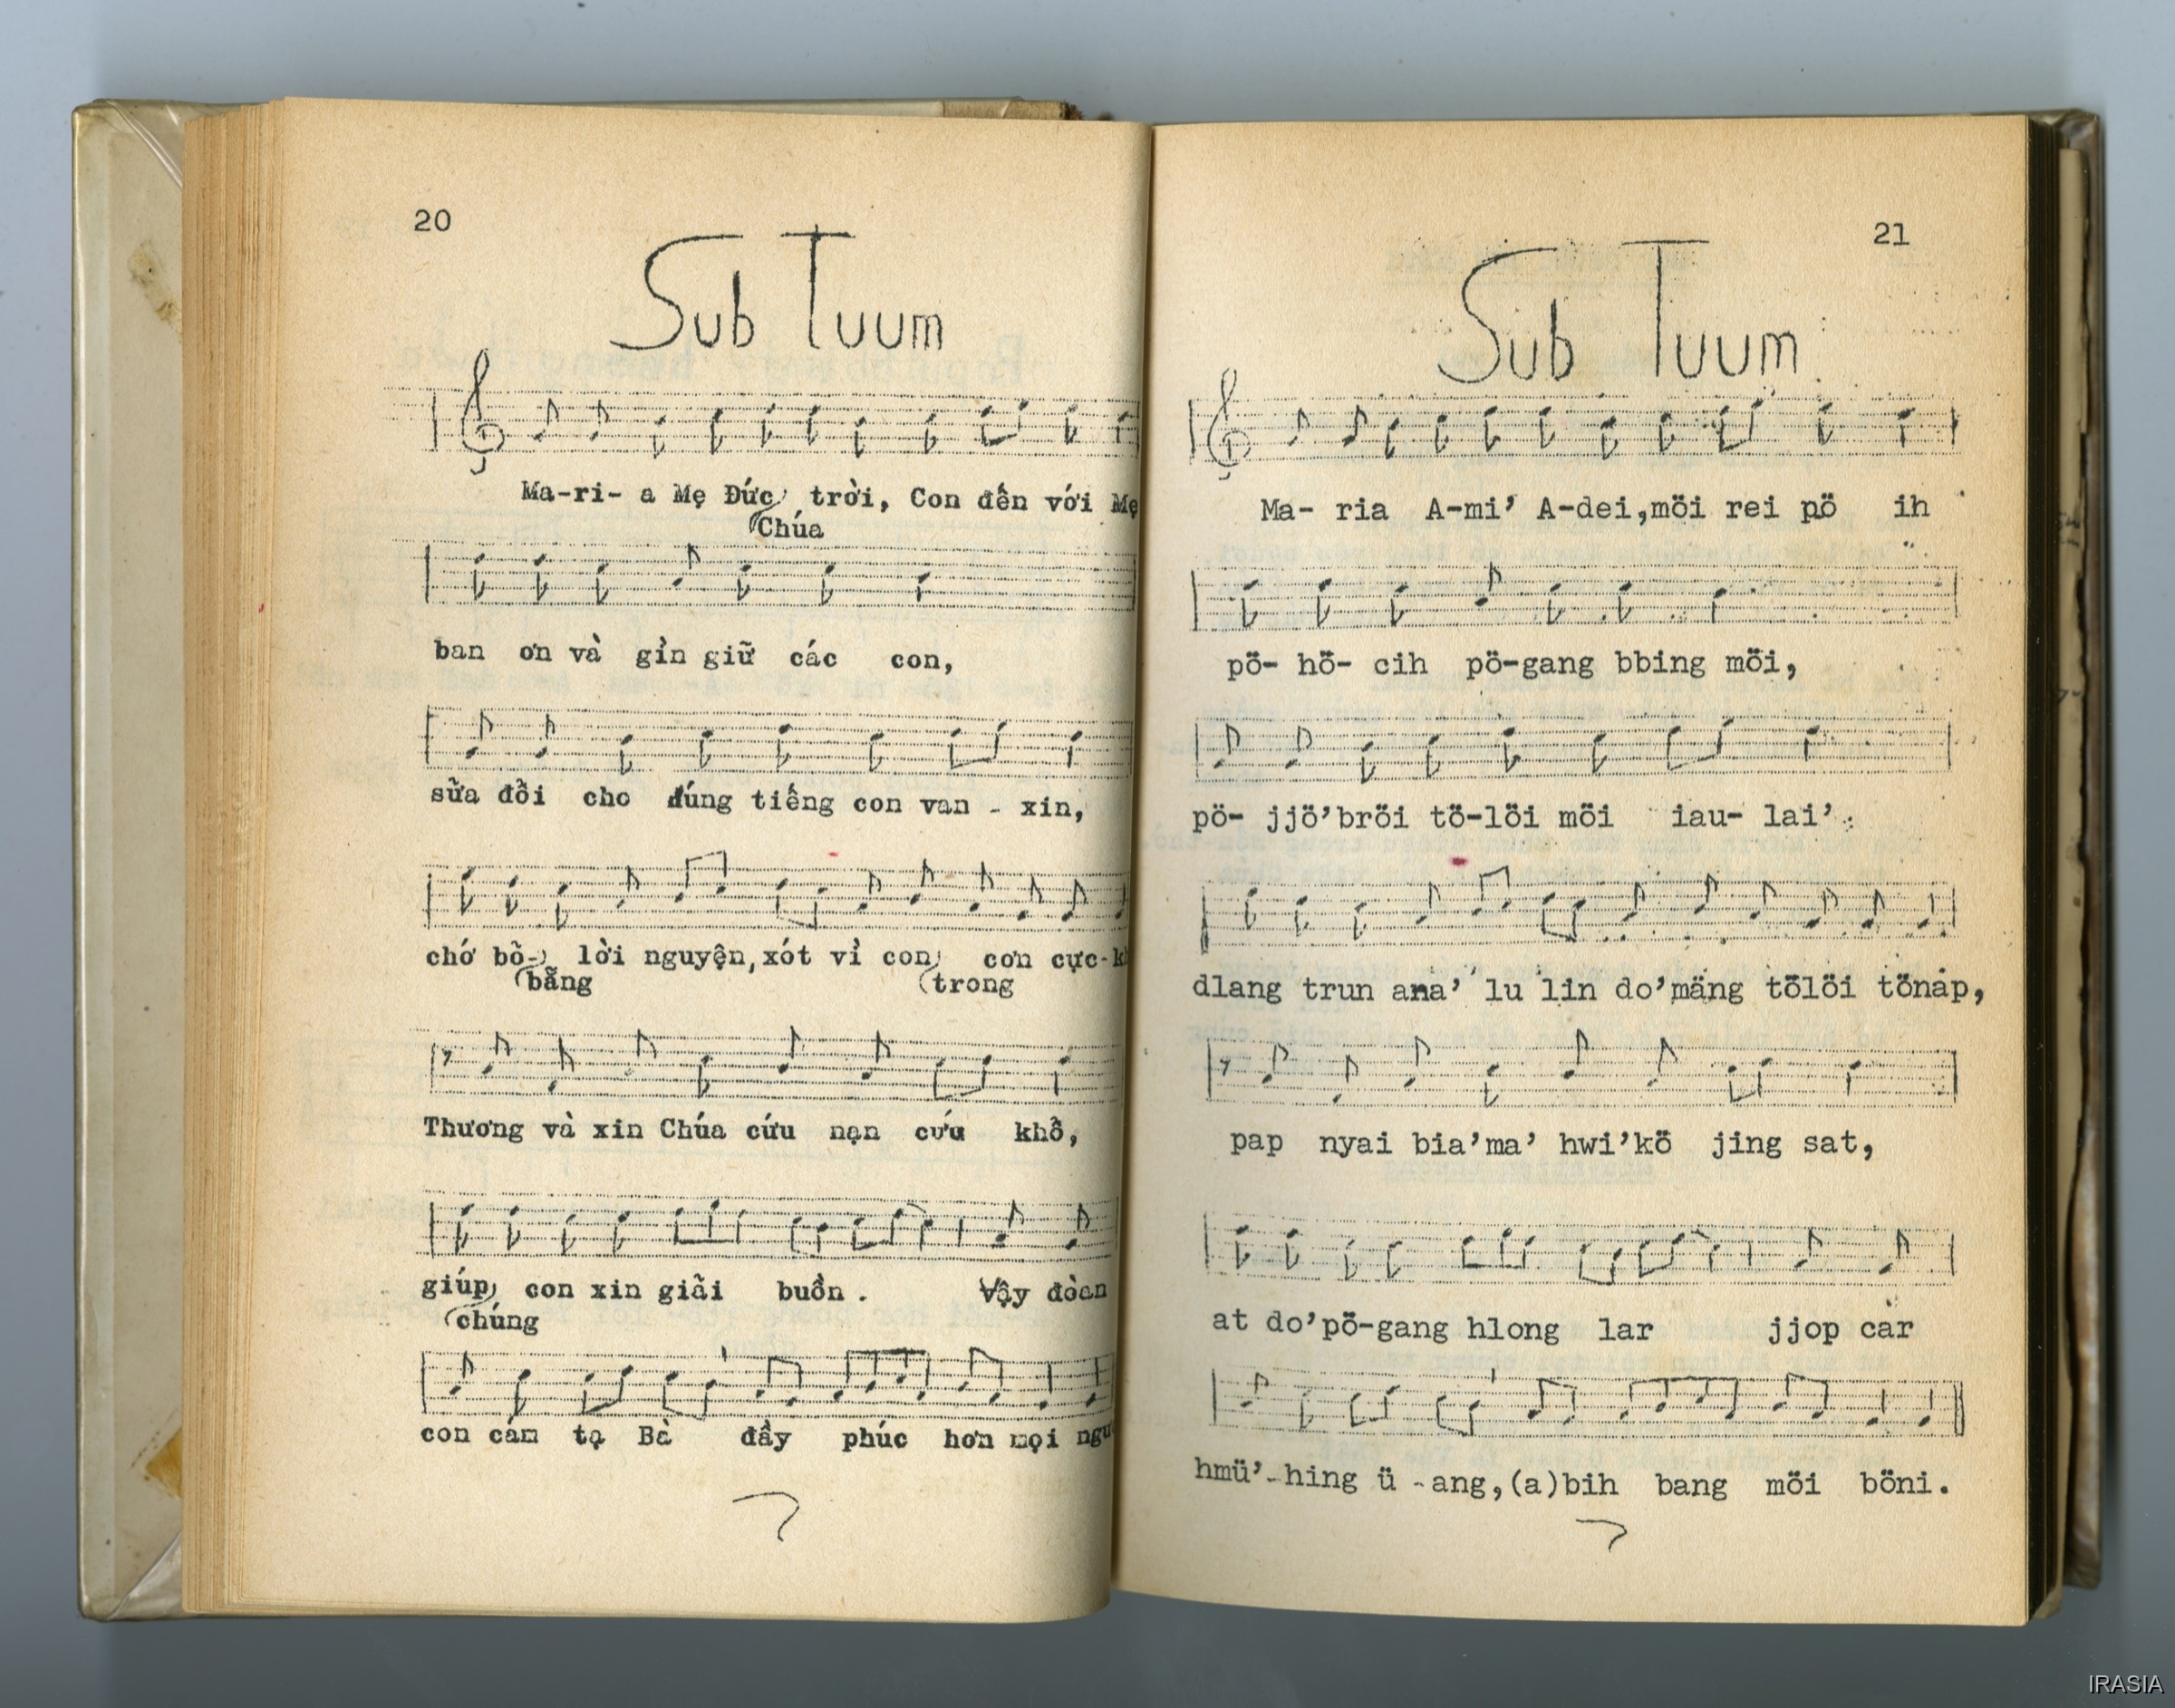 20
Sub Tuum
Ma-ri- a Mẹ Đức trời, Con đến với Mẹ
Chúa
ban ơn và gìn giữ các con,
sửa đổi cho đúng tiếng con van - xin,
chớ bỏ- lời nguyện, xót vì con cơn cực-
bẵng trong
Thương và xin Chúa cứu nạn cứu khổ,
giúp con xin giải buồn. Vậy đòan
chúng
con cám tạ Bà đầy phúc hơn mọi
21
Sub Tuum
Ma- ria A-mi' A-dei, möi rei pö ih
pö- hö- cih pö-gang bbing möi,
pö- jjö' bröi tö-löi möi iau- lai'.
dlang trun ana' lu lin do' mäng tölöi tönap,
pap nyai bia' ma' hwi' kö jing sat,
at do' pö-gang hlong lar jjop car
hmü'-hing ü -ang, (a)bih bang möi böni.
IRASIA